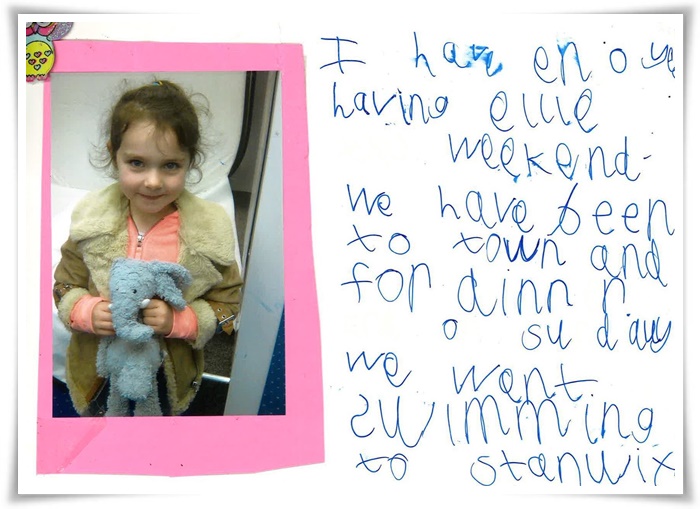 I hav enoye
having ellie
weekend.
we have been
to town and
for dinn r
o su day
we went
swimming
to stanwix